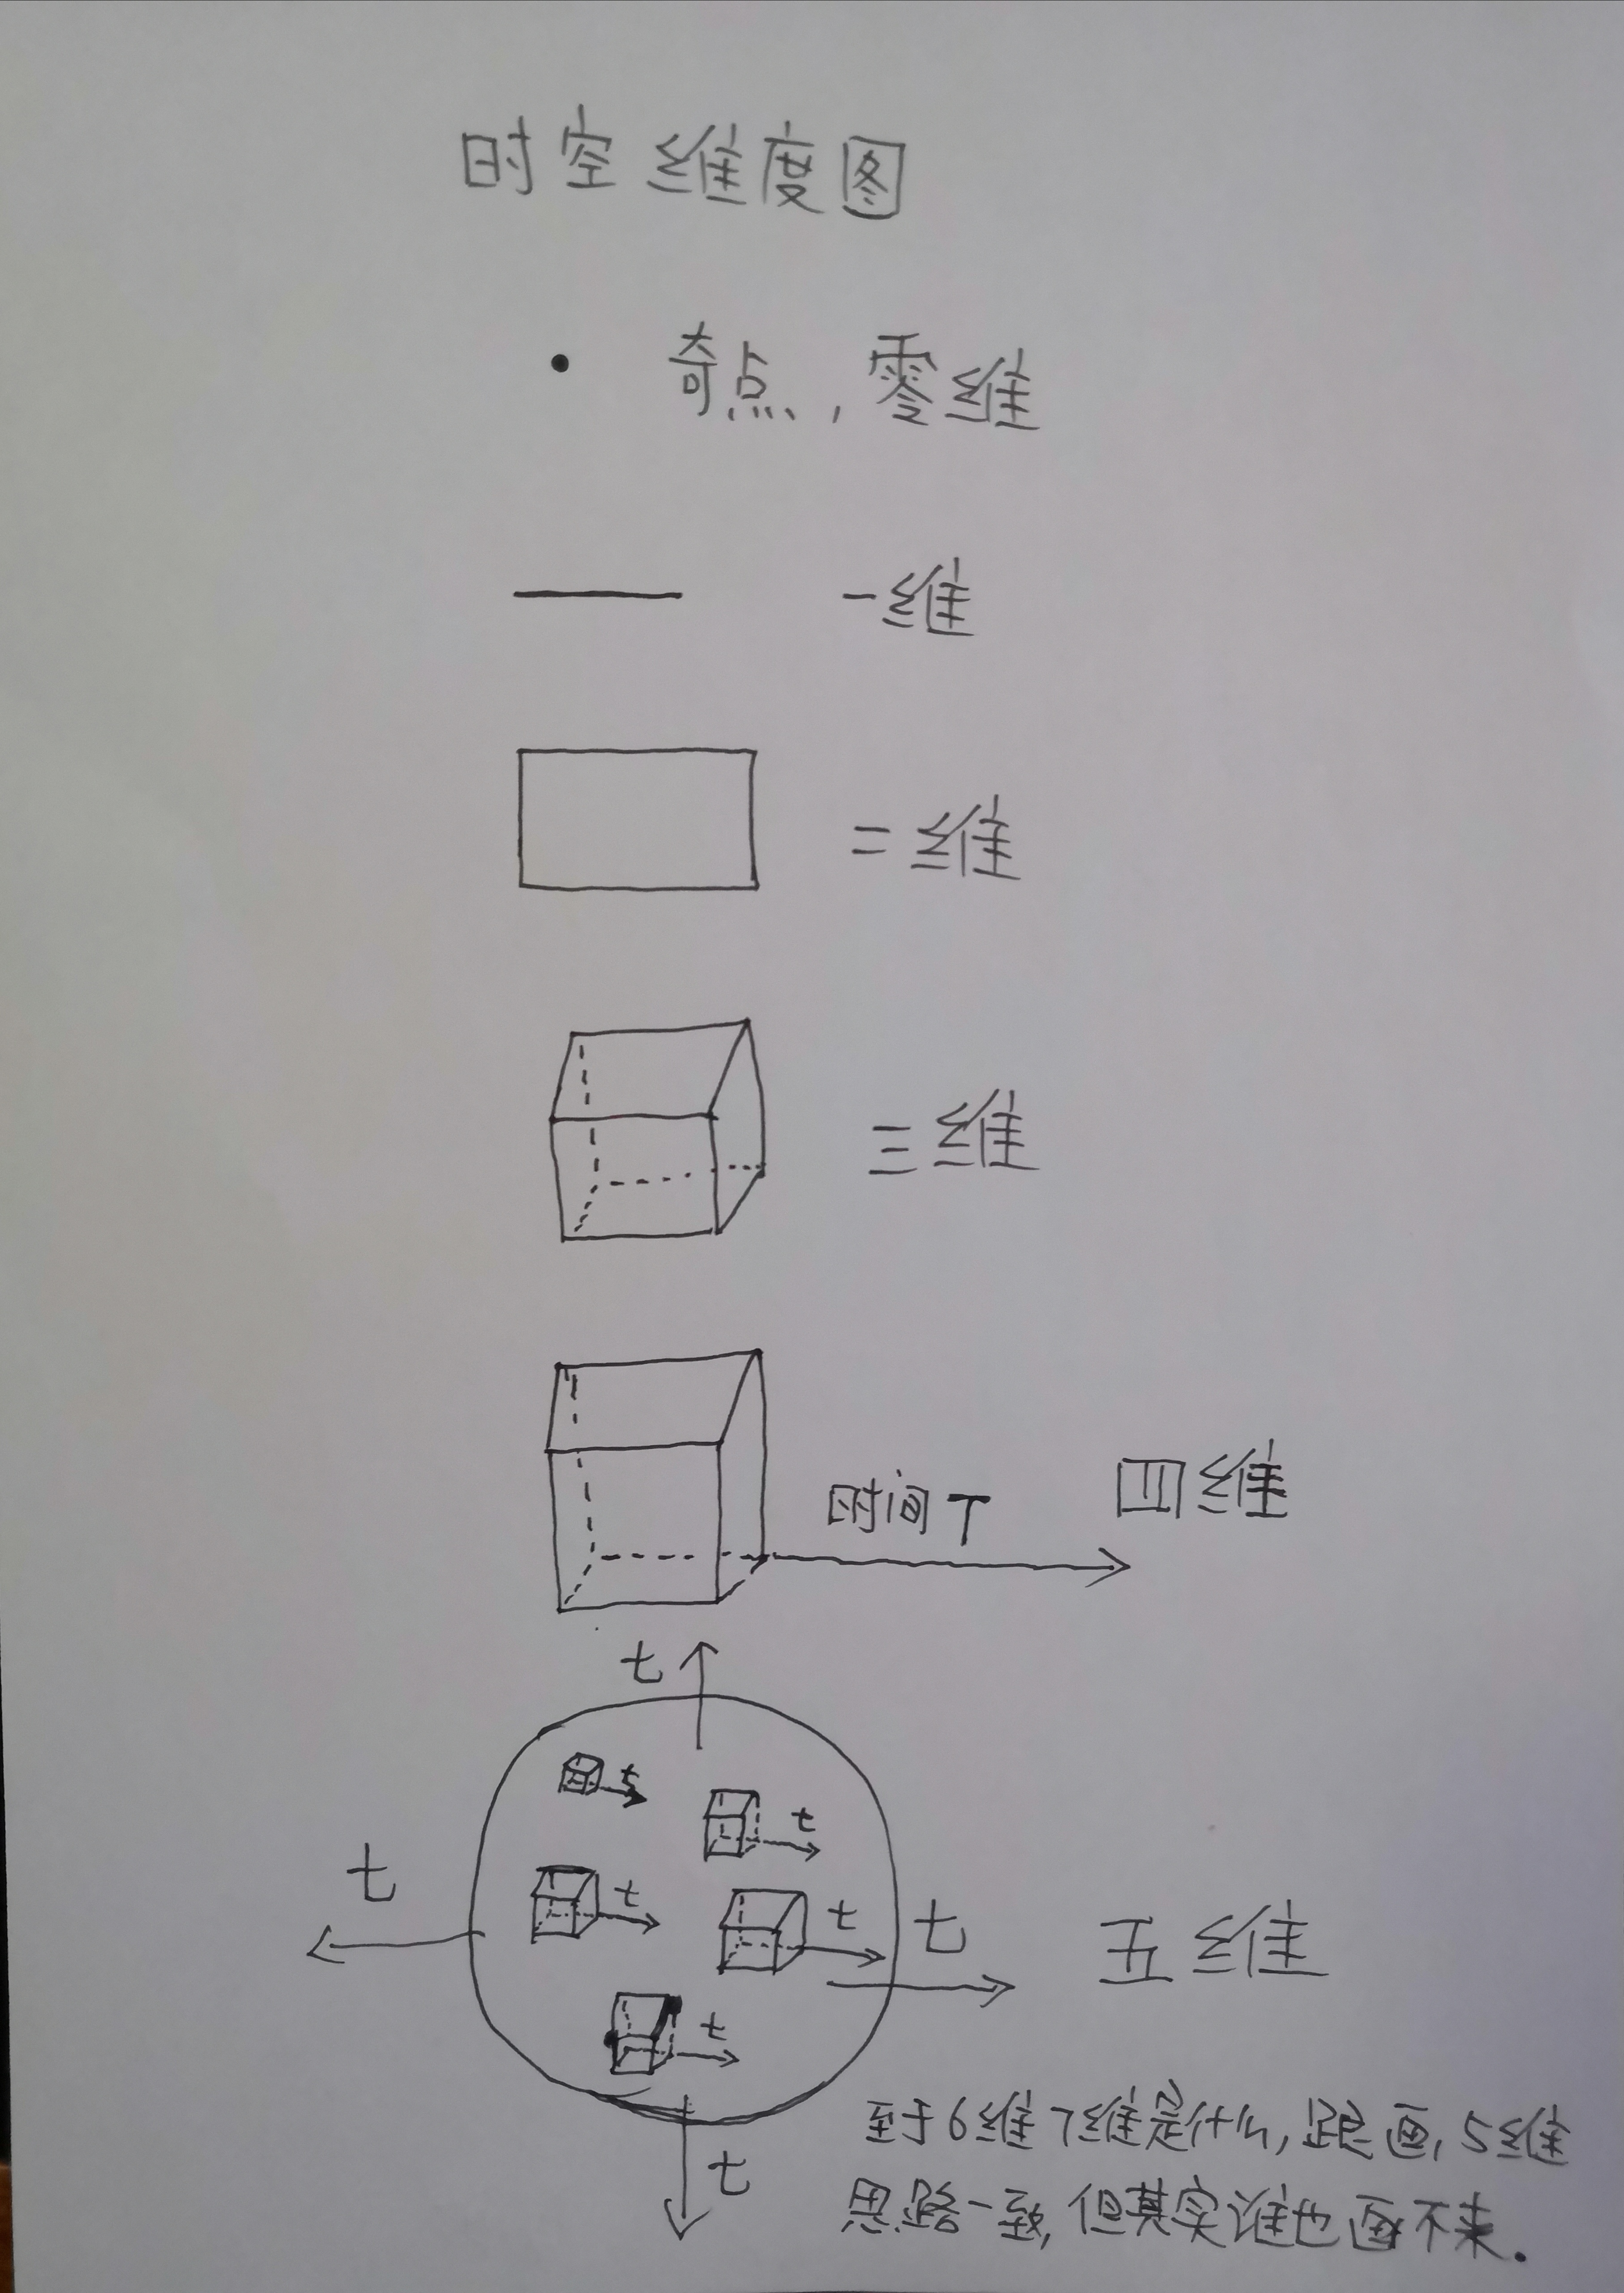 时空维度图
奇点，零维
一维
二维
三维
时间T
四维
t
t
t
t
t
t
t
t
五维
t
至于6维7维是什么，跟画，5维
思路一致，但其实谁也画不来．
t